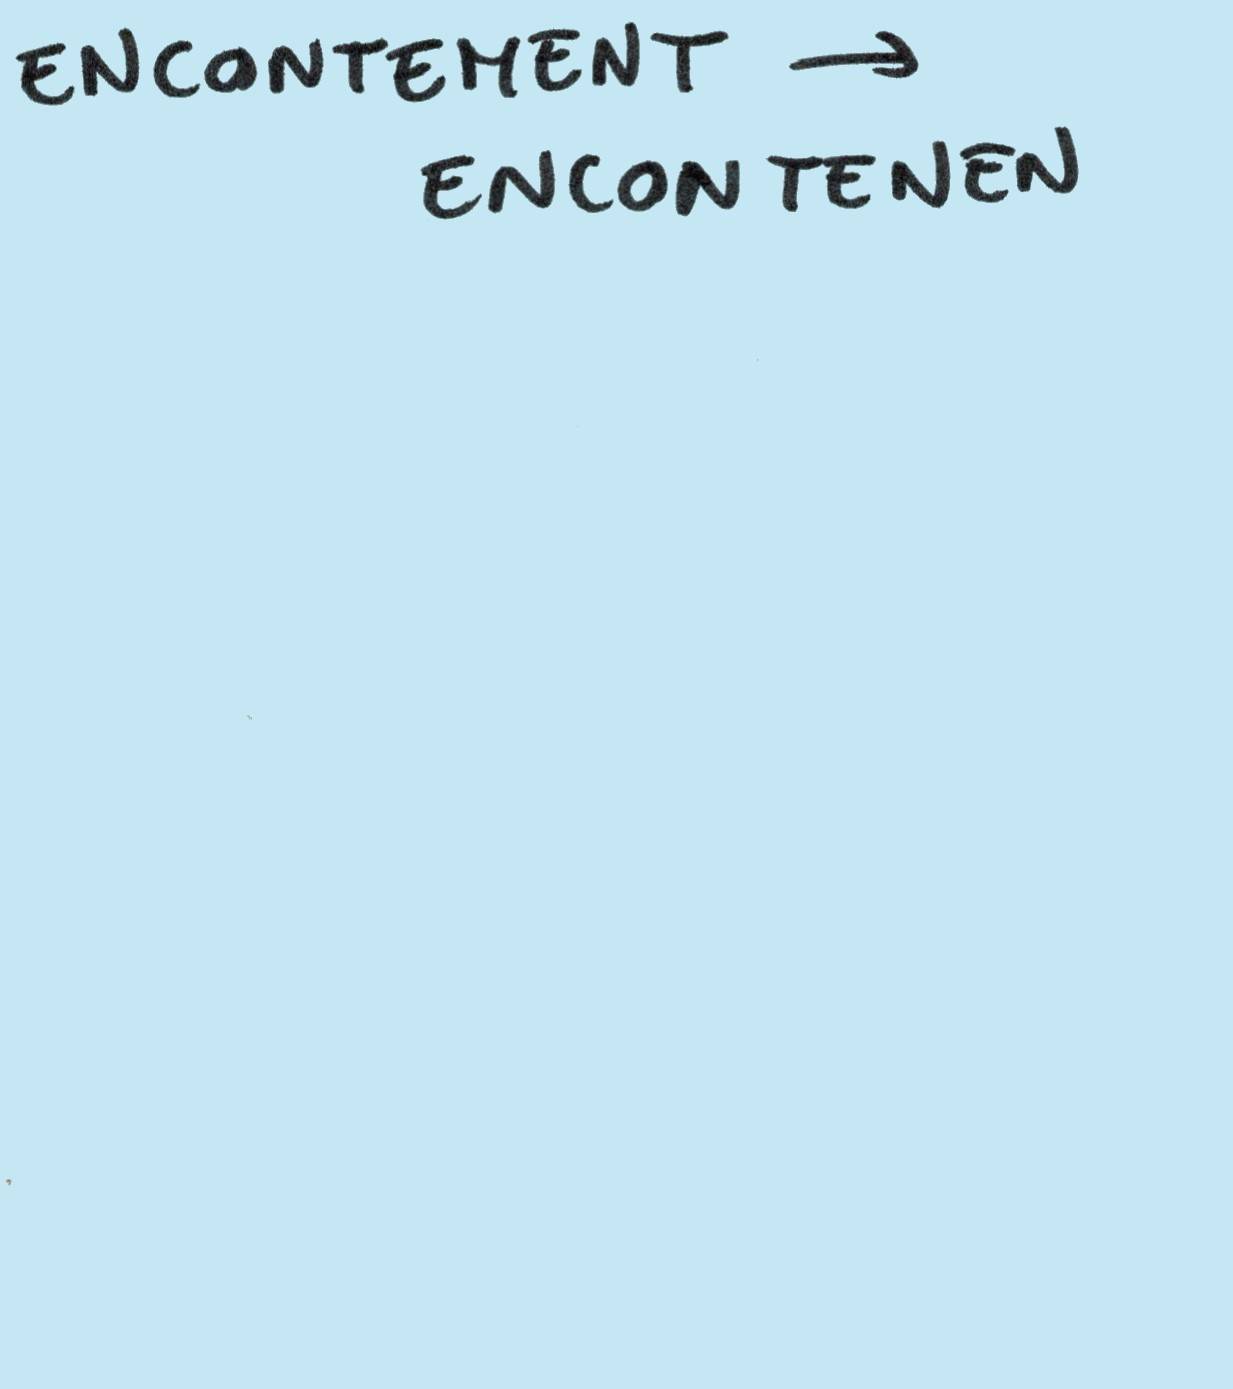 ENCONTEMENT →
ENCONTENEN